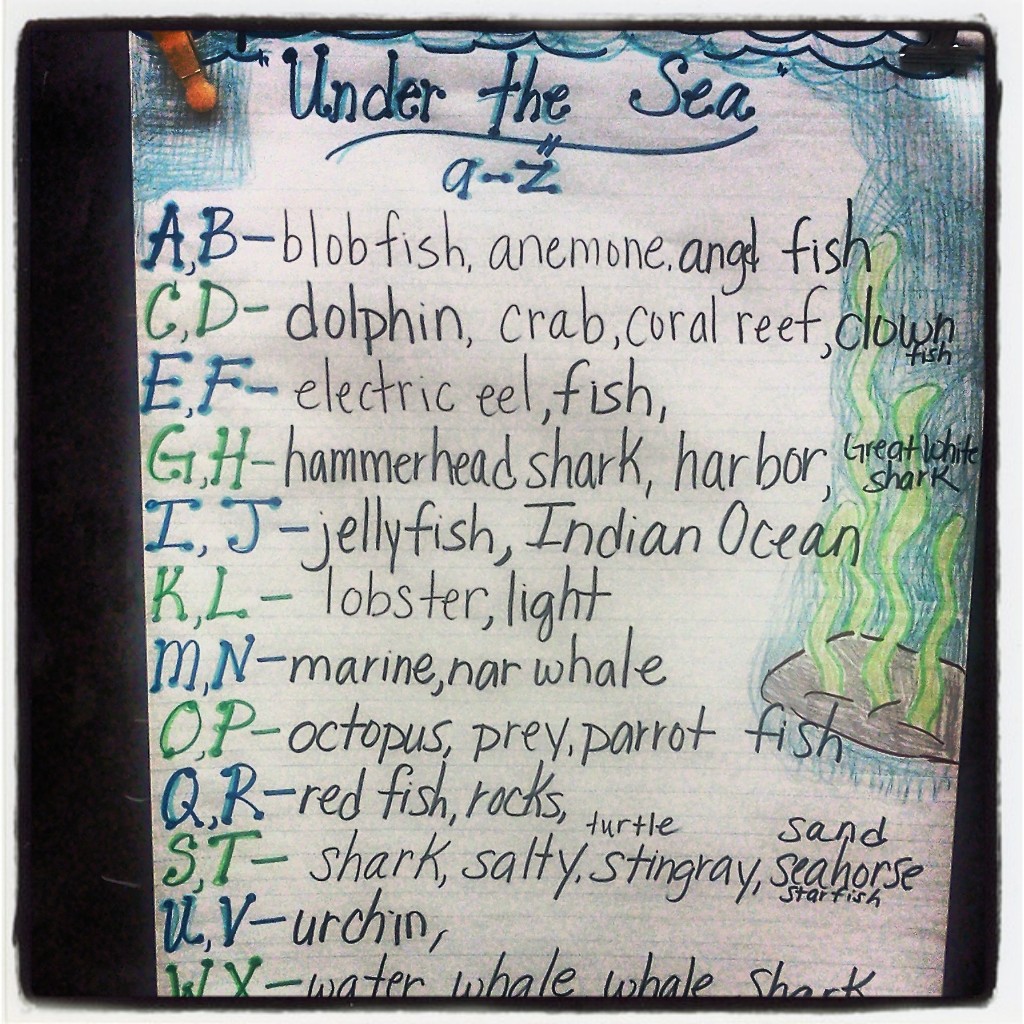 "Under the Sea"
a-z
A,B-blobfish, anemone, angel fish
C,D- dolphin, crab, coral reef, clown fish
E,F- electric eel, fish,
G,H-hammerhead shark, harbor, Great White shark
I, J-jellyfish, Indian Ocean
K,L- lobster, light
M,N-marine, nar whale
O,P-octopus, prey, parrot fish
Q,R-red fish, rocks,
turtle sand
S,T- shark, salty, stingray, seahorse
starfish
U,V-urchin,
W X-water whale whale shark